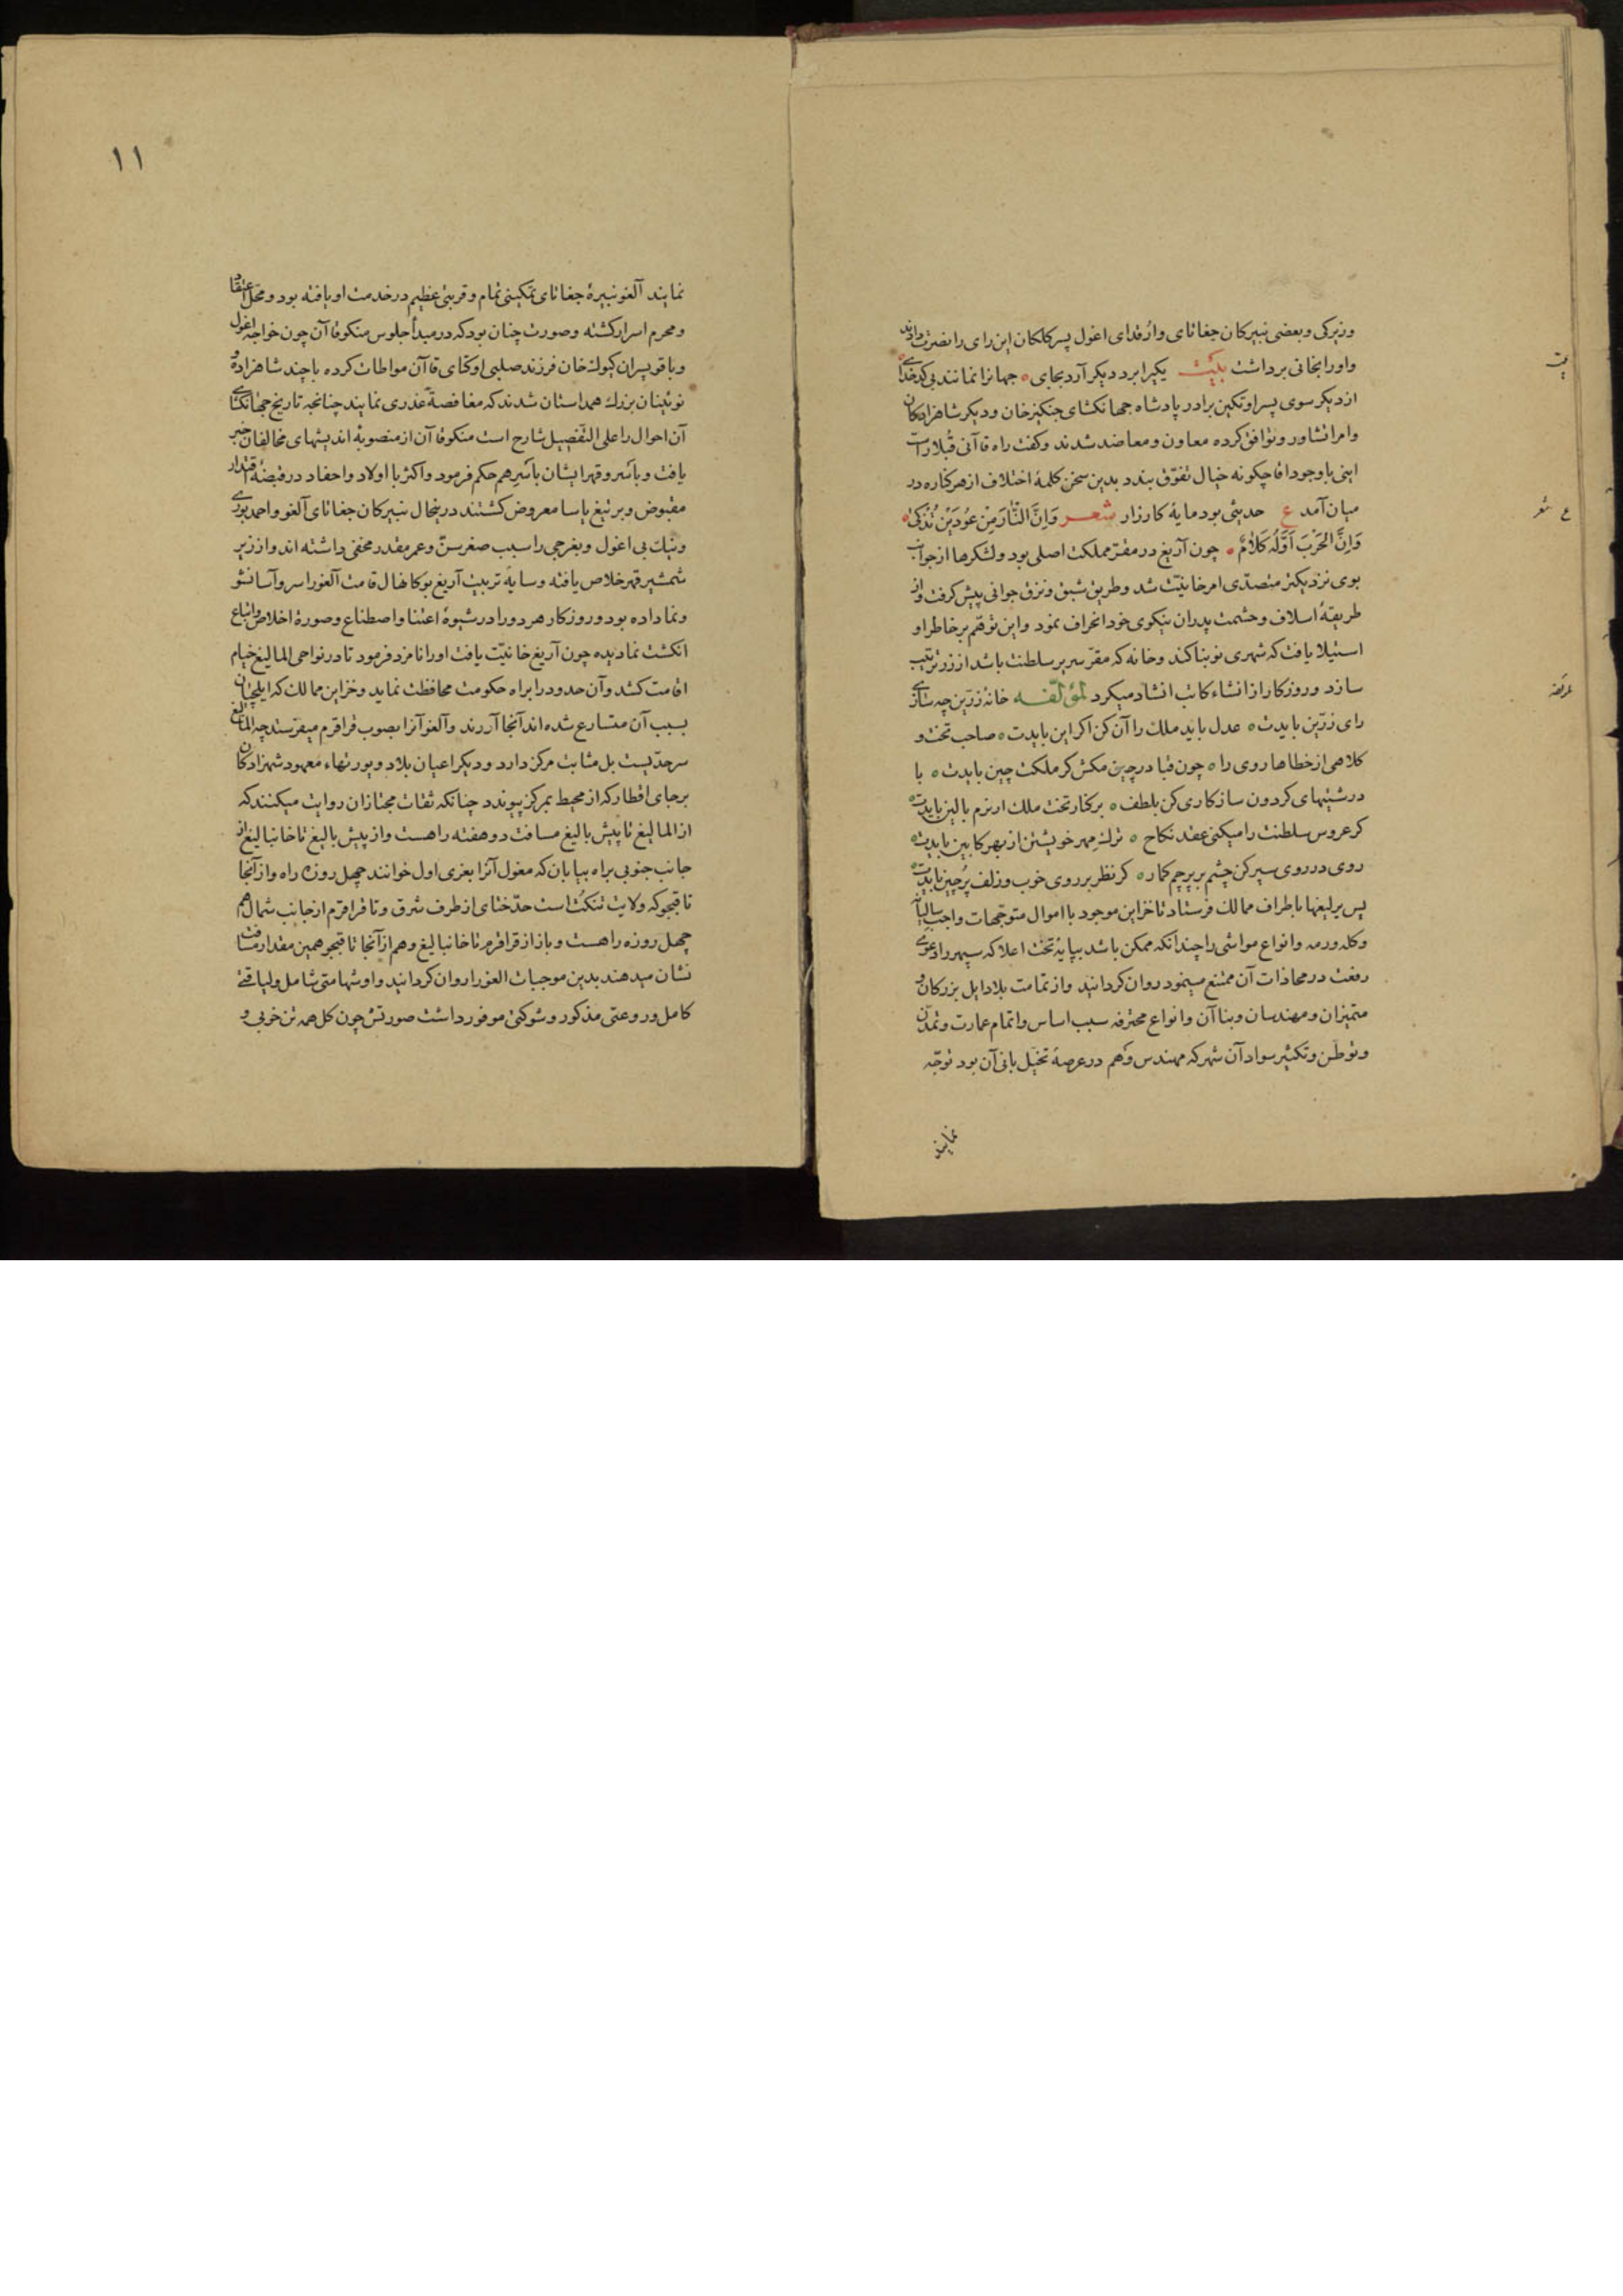 وزیرکی و بعضی نبیرکان جغاتای وارقدای اغول پسر کلکان این رای را نصرت دادند
واو را بخانی برداشت بیت یکیرا برد دیکر آرد بجای جهانرا نمانند بی کدخدای
از دیکر سوی پسر اوتکین برادر پادشاه جهانکشای جنکیزخان و دیکر شاهزادکان
وامرا تشاور و توافق کرده معاون و معاضد شدند وکفت راه قاآنی قبلا راست
اینی باوجود اقا چکونه خیال تفوّق بندد بدین سخن کلمهٔ اختلاف از هر کناره در
میان آمد ع حدیثی بود مایهٔ کارزار شعر وَاِنَّ النّارَ مِنْ عُودَیْنِ تُذْکیٰ
وَاِنَّ الحَرْبَ اَوَّلُهُ کَلامٌ چون آریغ در مقرّ مملکت اصلی بود ولشکرها از جوانب
بوی نزدیکتر متصدّی امر خانیّت شد وطریق شبق ونزق جوانی پیش کرفت واز
طریقهٔ اسلاف وحشمت پدران نیکوی خود انحراف نمود واین توهّم بر خاطر او
استیلا یافت که شهری نو بنا کند وخانه که مقرّ سریر سلطنت باشد از زر ترتیب
سازد وروزکار از انشاء کاتب انشاد میکرد لمؤلّفه خانه زرّین چه سازی
رای زرّین بایدت عدل باید ملک را آن کن اکر این بایدت صاحب تخت و
کلاهی از خطاها روی را چون قبا در چین مکش کر ملکت چین بایدت با
درشتیهای کردون سازکاری کن بلطف برکنار تخت ملک ار نرم بالین بایدت
کر عروس سلطنت را میکنی عقد نکاح ترک مهر خویشتن از بهر کابین بایدت
روی در روی سپر کن چشم بر پرچم کمار کر نظر بر روی خوب وزلف پرچین بایدت
پس یرلیغها باطراف ممالک فرستاد تا خزاین موجود با اموال متوجّهات واجب سالیانه
وکله ورمه وانواع مواشی را چندانکه ممکن باشد بپایهٔ تخت اعلا که سپهر را دعوی
رفعت در محاذات آن ممتنع مینمود روان کردانید واز تمامت بلاد ایل بزرکان و
متمیزان ومهندسان وبناآن وانواع محترفه سبب اساس واتمام عمارت وتمدّن
وتوطّن وتکثیر سواد آن شهر که مهندس وهم در عرصهٔ تخیّل بانی آن بود توجّه
نمایند
بیت
ع شعر
۱۱
نمایند آلغو نبیرهٔ جغاتای تمکینی تمام وقربتی عظیم در خدمت او یافته بود ومحلّ اعتقاد
ومحرم اسرار کشته وصورت چنان بود که در مبدأ جلوس منکوقاآن چون خواجه اغول
وباقو پسران کیوک خان فرزند صلبی اوکتای قاآن مواطات کرده با چند شاهزاده و
نوئینان بزرک همداستان شدند که مغافصةً غدری نمایند چنانچه تاریخ جهانکشای
آن احوال را علی التّفصیل شارح است منکوقاآن از منصوبهٔ اندیشهای مخالفان خبر
یافت وباسر وقهر ایشان باسرهم حکم فرمود واکثر با اولاد واحفاد در قبضهٔ اقتدار
مقبوض وبر تیغ یاسا معروض کشتند درینحال نبیرکان جغاتای آلغو واحمد بوری
ونیک بی اغول وبغرجی را سبب صغر سنّ وعمر مقدر مخفی داشته اند واز زیر
شمشیر قهر خلاص یافته وسایهٔ تربیت آریغ بوکا نهال قامت آلغو را سروآسا نشو
ونما داده بود وروزکار هر دو را در شیوهٔ اعتنا واصطناع وصورة اخلاص واتباع
انکشت نما دیده چون آریغ خانیّت یافت او را نامزد فرمود تا در نواحی المالیغ خیام
اقامت کشد وآن حدود را براه حکومت محافظت نماید وخزاین ممالک که ایلچیان
بسبب آن متسارع شده اند آنجا آرند وآلغو آنرا بصوب قراقرم میفرستد چه المالیغ
سرحدّیست بل مثابت مرکز دارد ودیکر اعیان بلاد ویورتهاء معهود شهزادکان
بر جای اقطار که از محیط بمرکز پیوندد چنانکه ثقات مجتازان روایت میکنند که
از المالیغ تا پیش بالیغ مسافت دو هفته راهست واز پیش بالیغ تا خانبالیغ از
جانب جنوبی براه بیابان که مغول آنرا بغری اول خوانند چهل روزه راه واز آنجا
تا قیجو که ولایت تنکت است حدّ ختای از طرف شرق وتا قراقرم از جانب شمال هم
چهل روزه راهست وباز از قراقرم تا خانبالیغ وهم از آنجا تا قیجو همین مقدار مسافت
نشان میدهند بدین موجبات الغو را روان کردانید واو شهامتی شامل ولیاقتی
کامل وروعتی مذکور وشوکتی موفور داشت صورتش چون کل همه تن خوبی و